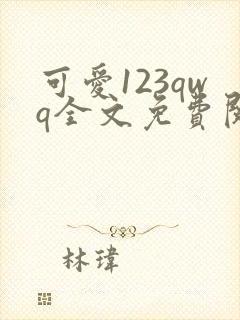 可愛123qw
q全文免費閱
林瑋